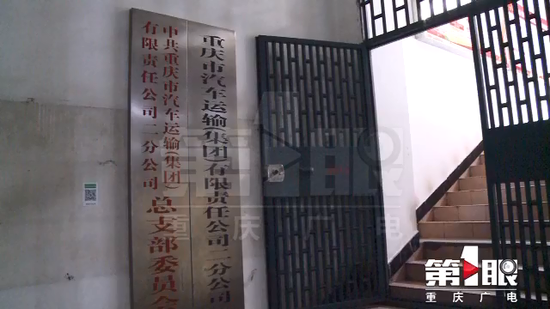 重庆市汽车运输(集团)有限责任公司二分公司
中共重庆市汽车运输(集团)
有限责任公司二分公司
总支部委员会
第1眼
重庆广电
第1眼
重庆广电